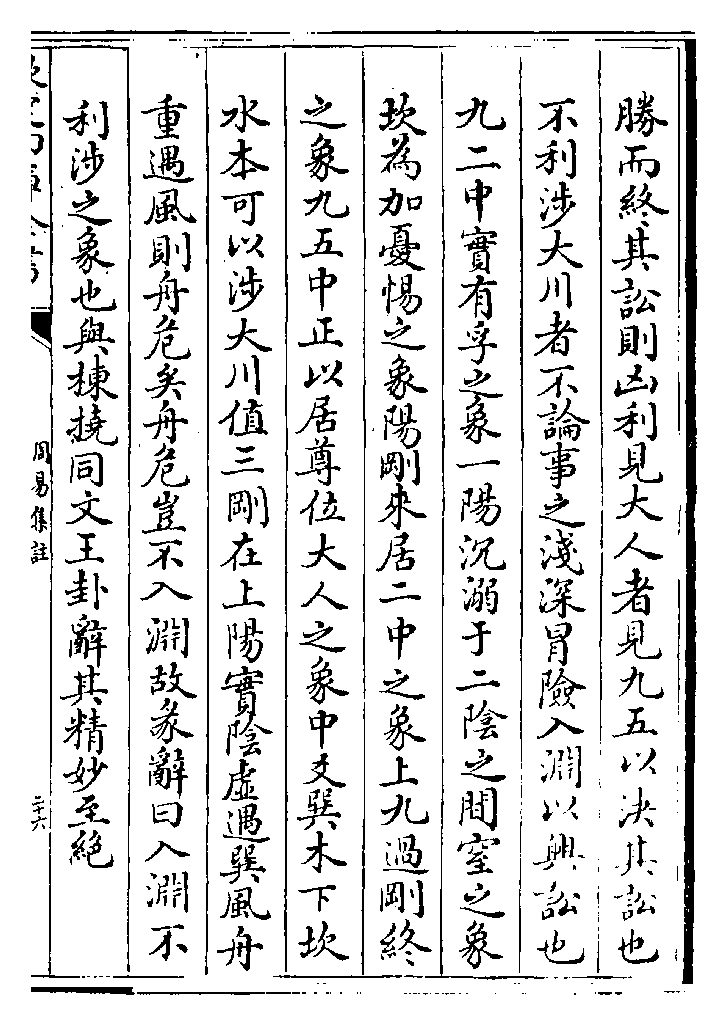 勝而終其訟則凶利見大人者見九五以決其訟也
不利涉大川者不論事之淺深冒險入淵以興訟也
九二中實有孚之象一陽沉溺于二陰之間窒之象
坎為加憂惕之象陽剛來居二中之象上九過剛終
之象九五中正以居尊位大人之象中爻巽木下坎
水本可以涉大川值三剛在上陽實陰虛遇巽風舟
重遇風則舟危矣舟危豈不入淵故彖辭曰入淵不
利涉之象也與棟撓同文王卦辭其精妙至絕
周易集註
二十六